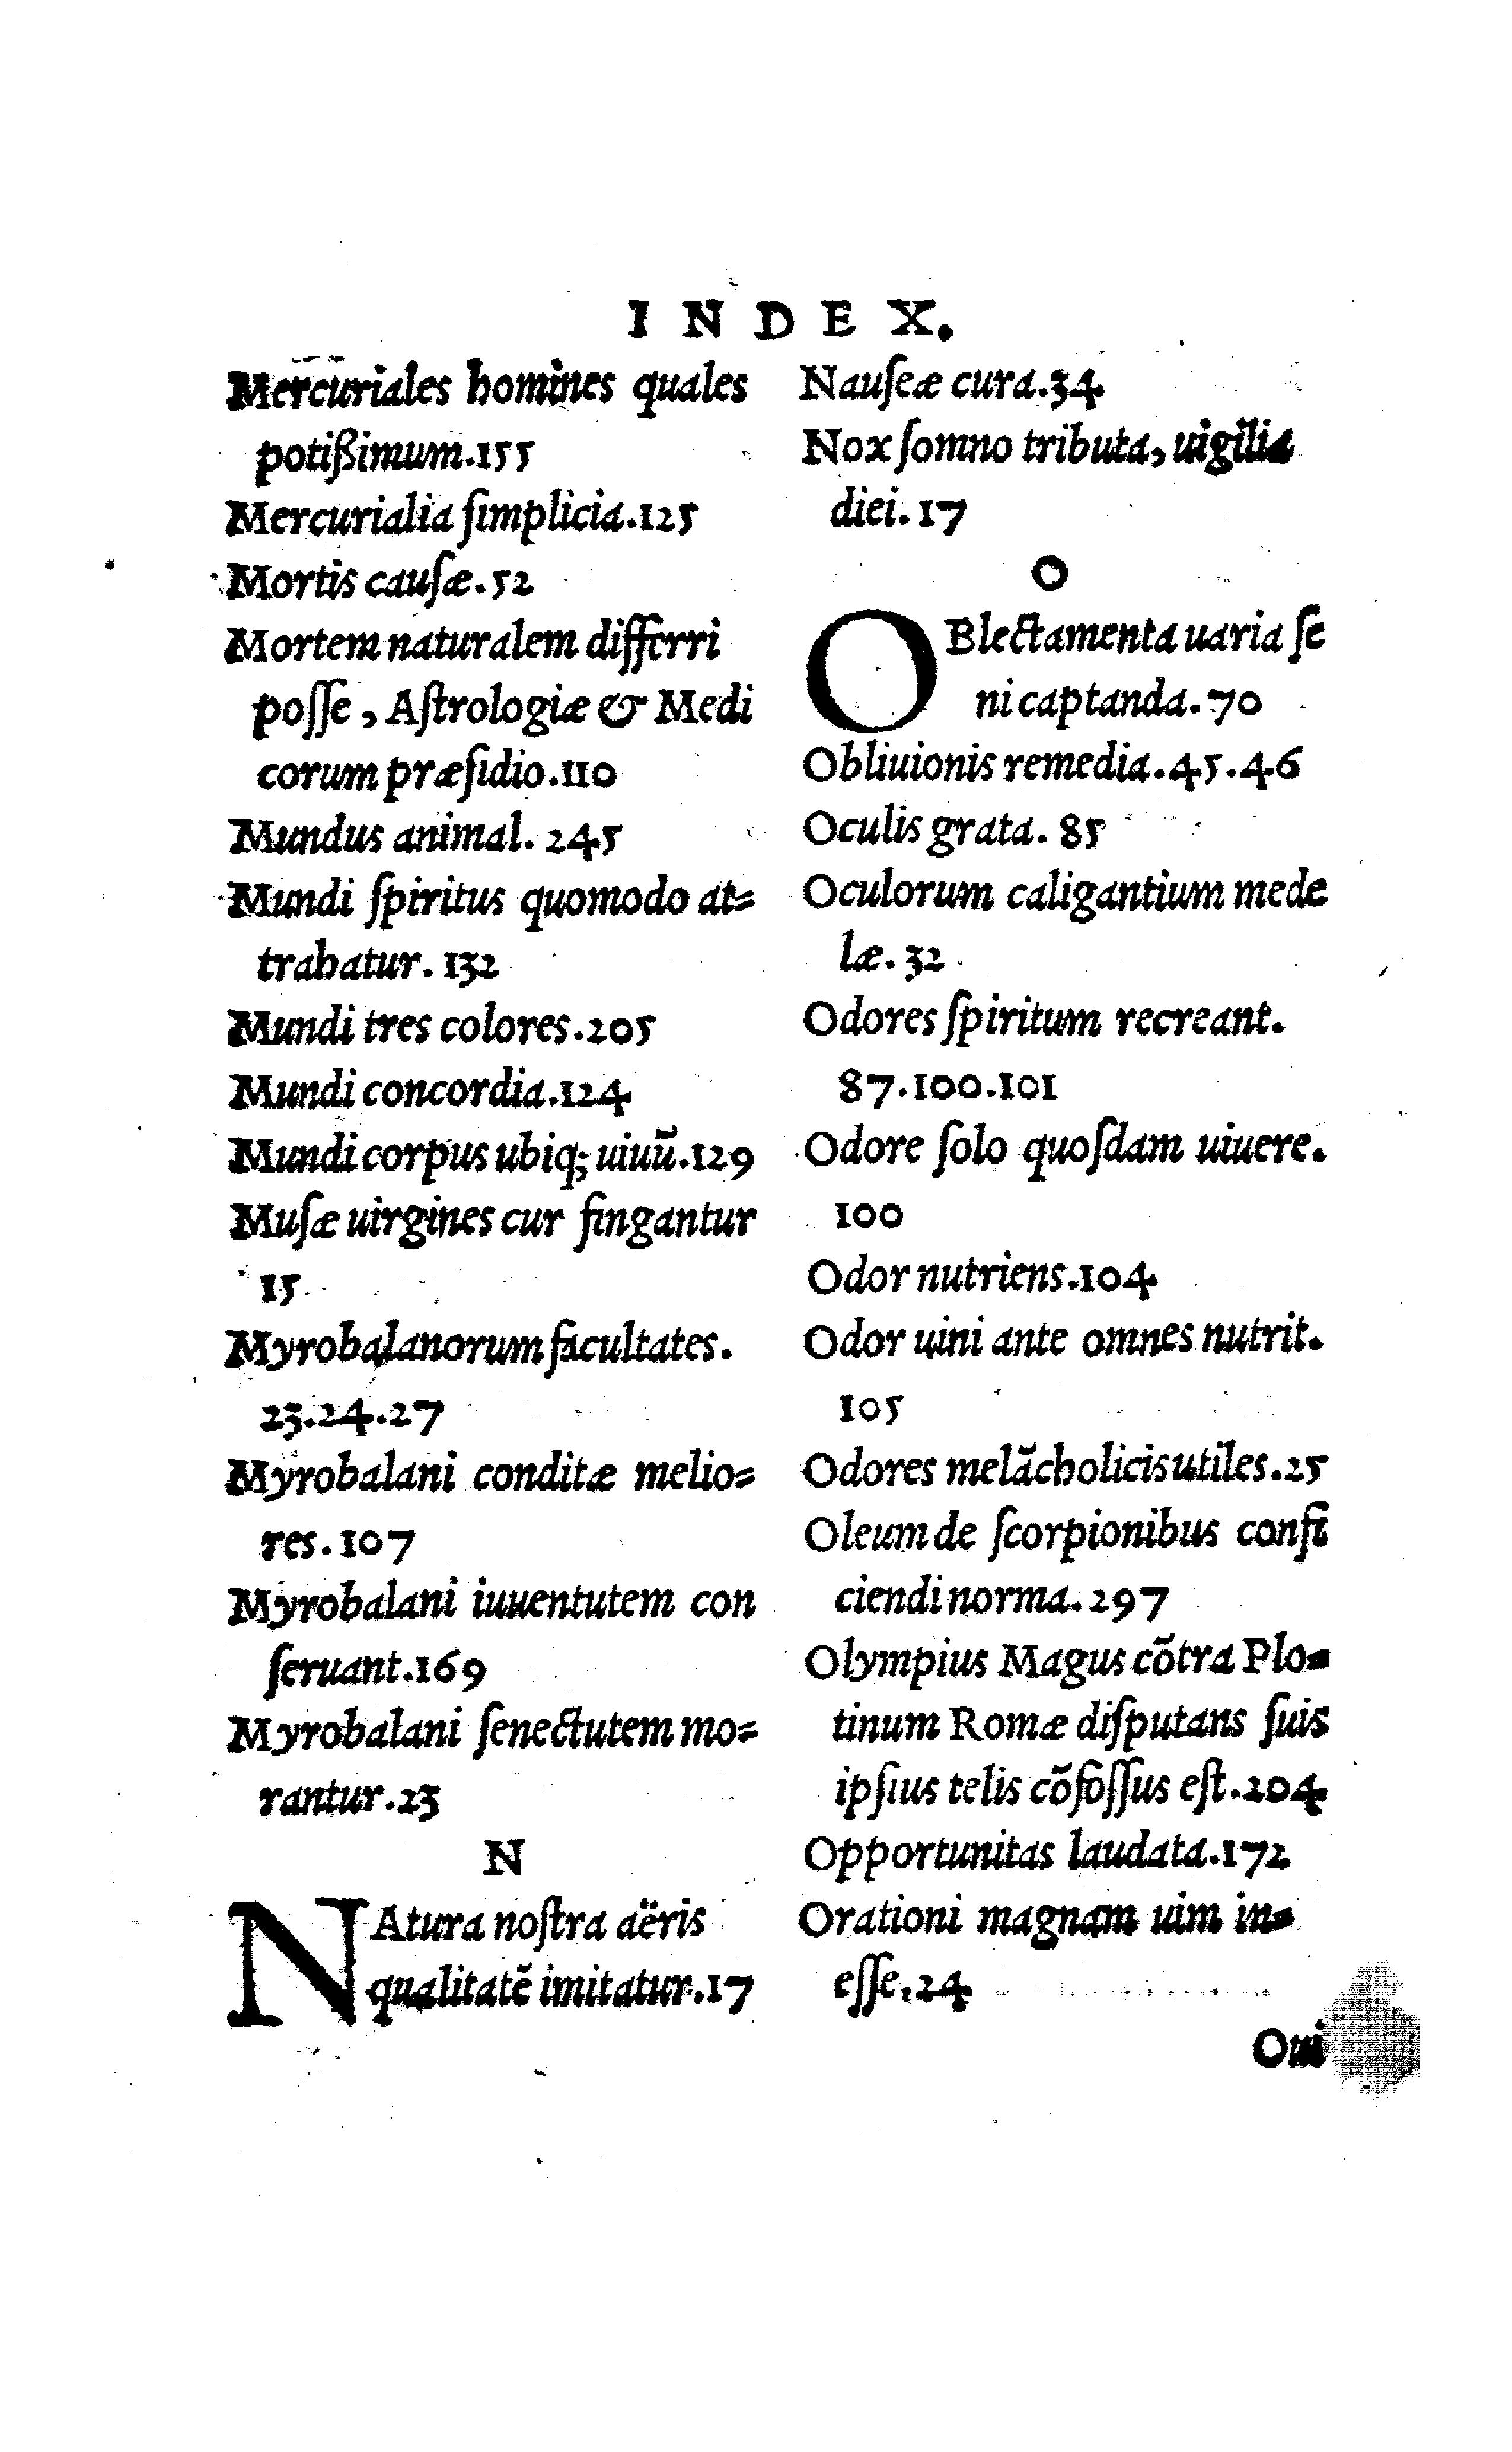 INDEX.
Mercuriales homines quales
potißimum.155
Mercurialia ſimplicia.125
Mortis cauſæ.52
Mortem naturalem differri
poſſe, Aſtrologiæ & Medi
corum præſidio.110
Mundus animal. 245
Mundi ſpiritus quomodo at=
trahatur. 132
Mundi tres colores.205
Mundi concordia.124
Mundi corpus ubiq; uiuū.129
Muſæ uirgines cur fingantur
15
Myrobalanorum facultates.
23.24.27
Myrobalani conditæ melio=
res.107
Myrobalani iuuentutem con
ſeruant.169
Myrobalani ſenectutem mo=
rantur.23
N
NAtura noſtra aëris
qualitatē imitatur.17
Nauſeæ cura.34
Nox ſomno tributa, uigilia
diei. 17
O
OBlectamenta uaria ſe
ni captanda. 70
Obliuionis remedia.45.46
Oculis grata. 85
Oculorum caligantium mede
læ. 32
Odores ſpiritum recreant.
87.100.101
Odore ſolo quoſdam uiuere.
100
Odor nutriens.104
Odor uini ante omnes nutrit.
105
Odores melācholicis utiles.25
Oleum de ſcorpionibus confi
ciendi norma. 297
Olympius Magus cōtra Plo=
tinum Romæ diſputans ſuis
ipſius telis cōfoſſus eſt.204
Opportunitas laudata.172
Orationi magnam uim in=
eſſe.24